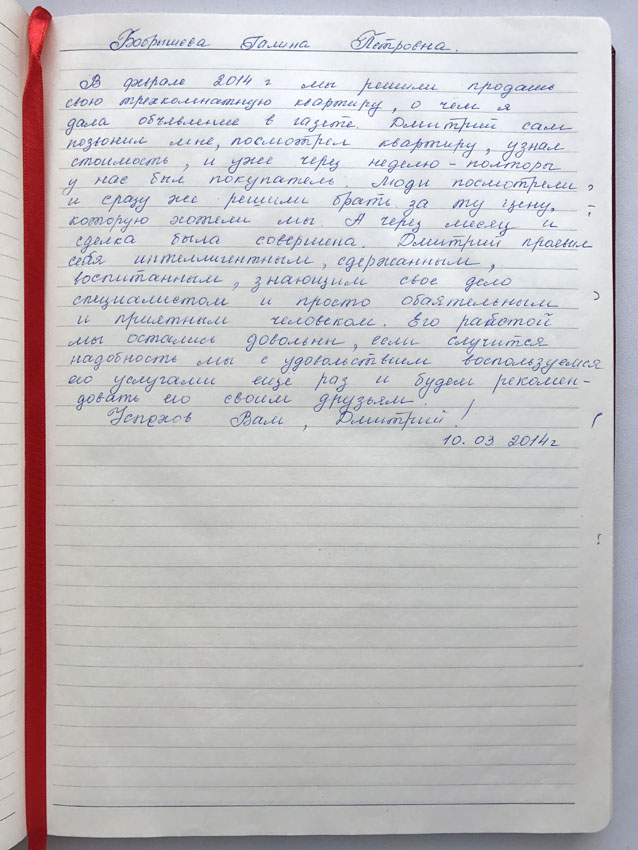 Бобрышева Галина Петровна.
В феврале 2014 г мы решили продать
свою трехкомнатную квартиру, о чем я
дала объявление в газете. Дмитрий сам
позвонил мне, посмотрел квартиру, узнал
стоимость, и уже через неделю - полторы
у нас был покупатель. Люди посмотрели
и сразу же решили брать за ту цену,
которую хотели мы. А через месяц и
сделка была совершена. Дмитрий проявил
себя интеллигентным, сдержанным,
воспитанным, знающим свое дело
специалистом и просто обаятельным
и приятным человеком. Его работой
мы остались довольны, если случится
надобность мы с удовольствием воспользуемся
его услугами еще раз и будем рекомен-
довать его своим друзьям.
Успехов Вам, Дмитрий!
10.03 2014г